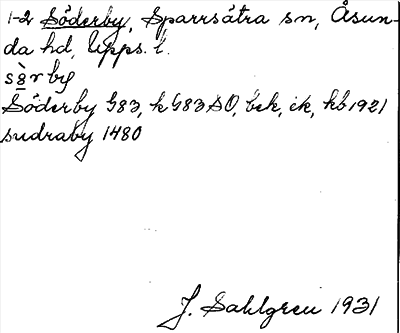 1-2 Söderby, Sparrsåtra sn, Åsun-
da hd, Upps. l.
sè̱rby
Söderby G83, k G83 SO, bek, ik, kb 1921
sudraby 1480
J. Sahlgren 1931